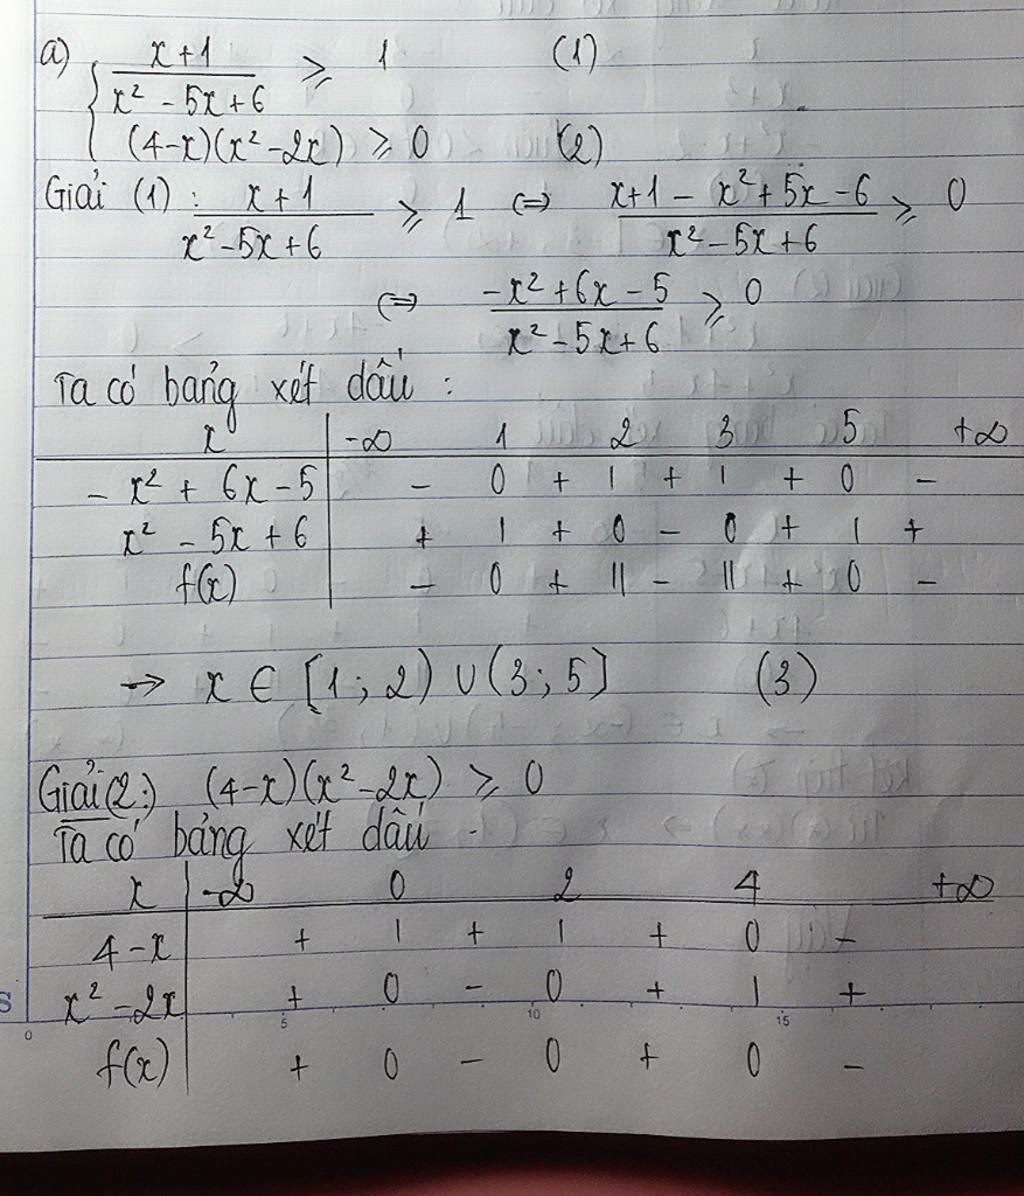 a) { (x+1)/(x² - 5x + 6) ⩾ 1 (1)
(4-x)(x² - 2x) ⩾ 0 (2)
Giải (1) : (x + 1)/(x² - 5x + 6) ⩾ 1 ⇔ (x+1 - x² + 5x - 6)/(x² - 5x + 6) ⩾ 0
⇔ (-x² + 6x - 5)/(x² - 5x + 6) ⩾ 0
Ta có bảng xét dấu :
x | -∞ 1 2 3 5 +∞
- x² + 6x - 5 | - 0 + | + | + 0 -
x² - 5x + 6 | + | + 0 - 0 + | +
f(x) | - 0 + || - || + 0 -
→ x ∈ [1 ; 2) ∪ (3 ; 5] (3)
Giải (2:) (4-x)(x² - 2x) ⩾ 0
Ta có bảng xét dấu .
x | -∞ 0 2 4 +∞
4 - x | + | + | + 0 -
x² - 2x | + 0 - 0 + | +
S
0 5 10 15
f(x) | + 0 - 0 + 0 -